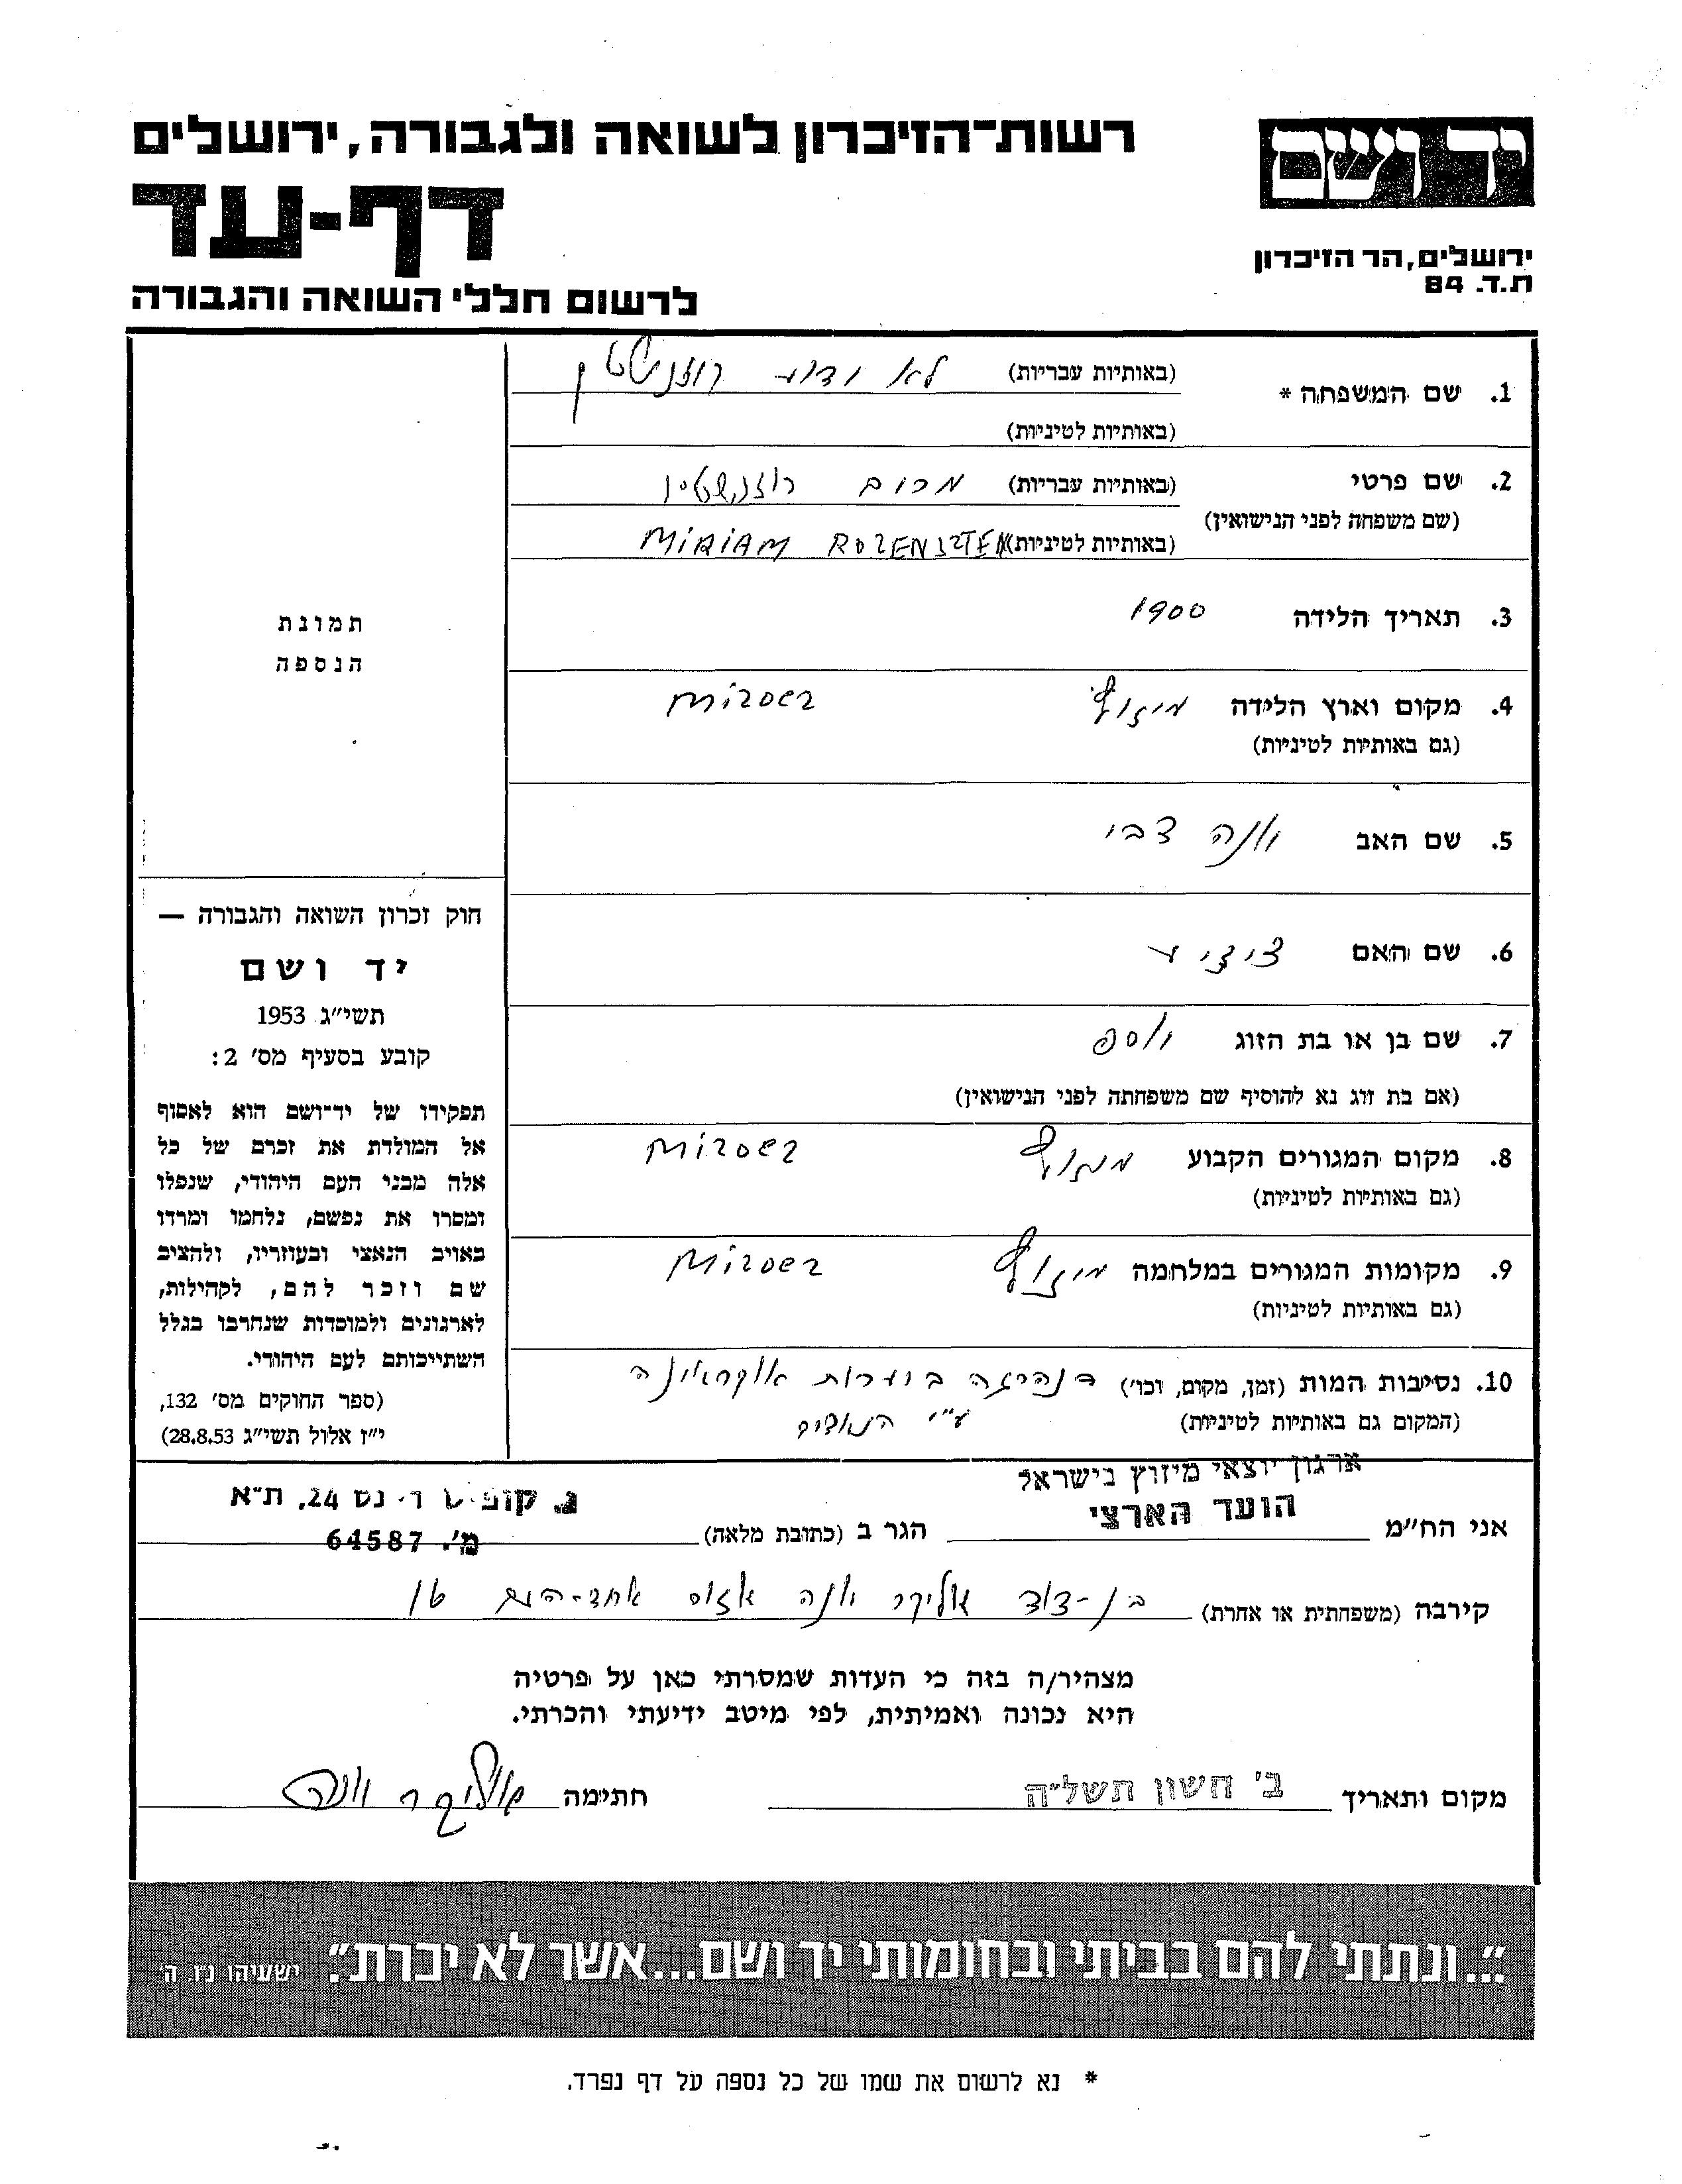 יד ושם
ירושלים, הר הזיכרון
ת.ד. 84
רשות-הזיכרון לשואה ולגבורה, ירושלים
דף-עד
לרשום חללי השואה והגבורה
1. שם המשפחה * (באותיות עבריות) לא ידוע רוזנשטין
(באותיות לטיניות)
2. שם פרטי (באותיות עבריות) מרים רוזנשטיין
(שם משפחה לפני הנישואין)
(באותיות לטיניות) MIRIAM ROZENSZTEIN
3. תאריך הלידה 1900
4. מקום וארץ הלידה מיזוץ MIZOCZ
(גם באותיות לטיניות)
5. שם האב יונה צבי
6. שם האם
7. שם בן או בת הזוג יוסף
(אם בת זוג נא להוסיף שם משפחתה לפני הנישואין)
8. מקום המגורים הקבוע מיזוץ MIZOCZ
(גם באותיות לטיניות)
9. מקומות המגורים במלחמה מיזוץ MIZOCZ
(גם באותיות לטיניות)
10. נסיבות המות (זמן, מקום, וכו') נהרגה ביערות אוקראינה
(המקום גם באותיות לטיניות) ע"י הנאצים
תמונת
הנספה
חוק זכרון השואה והגבורה —
יד ושם
תשי"ג 1953
קובע בסעיף מס' 2:
תפקידו של יד-ושם הוא לאסוף
אל המולדת את זכרם של כל
אלה מבני העם היהודי, שנפלו
ומסרו את נפשם, נלחמו ומרדו
באויב הנאצי ובעוזריו, ולהציב
שם וזכר להם, לקהילות,
לארגונים ולמוסדות שנחרבו בגלל
השתייכותם לעם היהודי.
(ספר החוקים מס' 132,
י"ז אלול תשי"ג 28.8.53)
ארגון יוצאי מיזוץ בישראל
אני הח"מ הועד הארצי הגר ב (כתובת מלאה) 24, ת"א
מ'. 64587
קירבה (משפחתית או אחרת) בן-דוד שליקר יונה
מצהיר/ה בזה כי העדות שמסרתי כאן על פרטיה
היא נכונה ואמיתית, לפי מיטב ידיעתי והכרתי.
מקום ותאריך ב' חשון תשל"ה חתימה שליקר יונה
"...ונתתי להם בביתי ובחומותי יד ושם...אשר לא יכרת". ישעיהו נ"ו, ה'
* נא לרשום את שמו של כל נספה על דף נפרד.